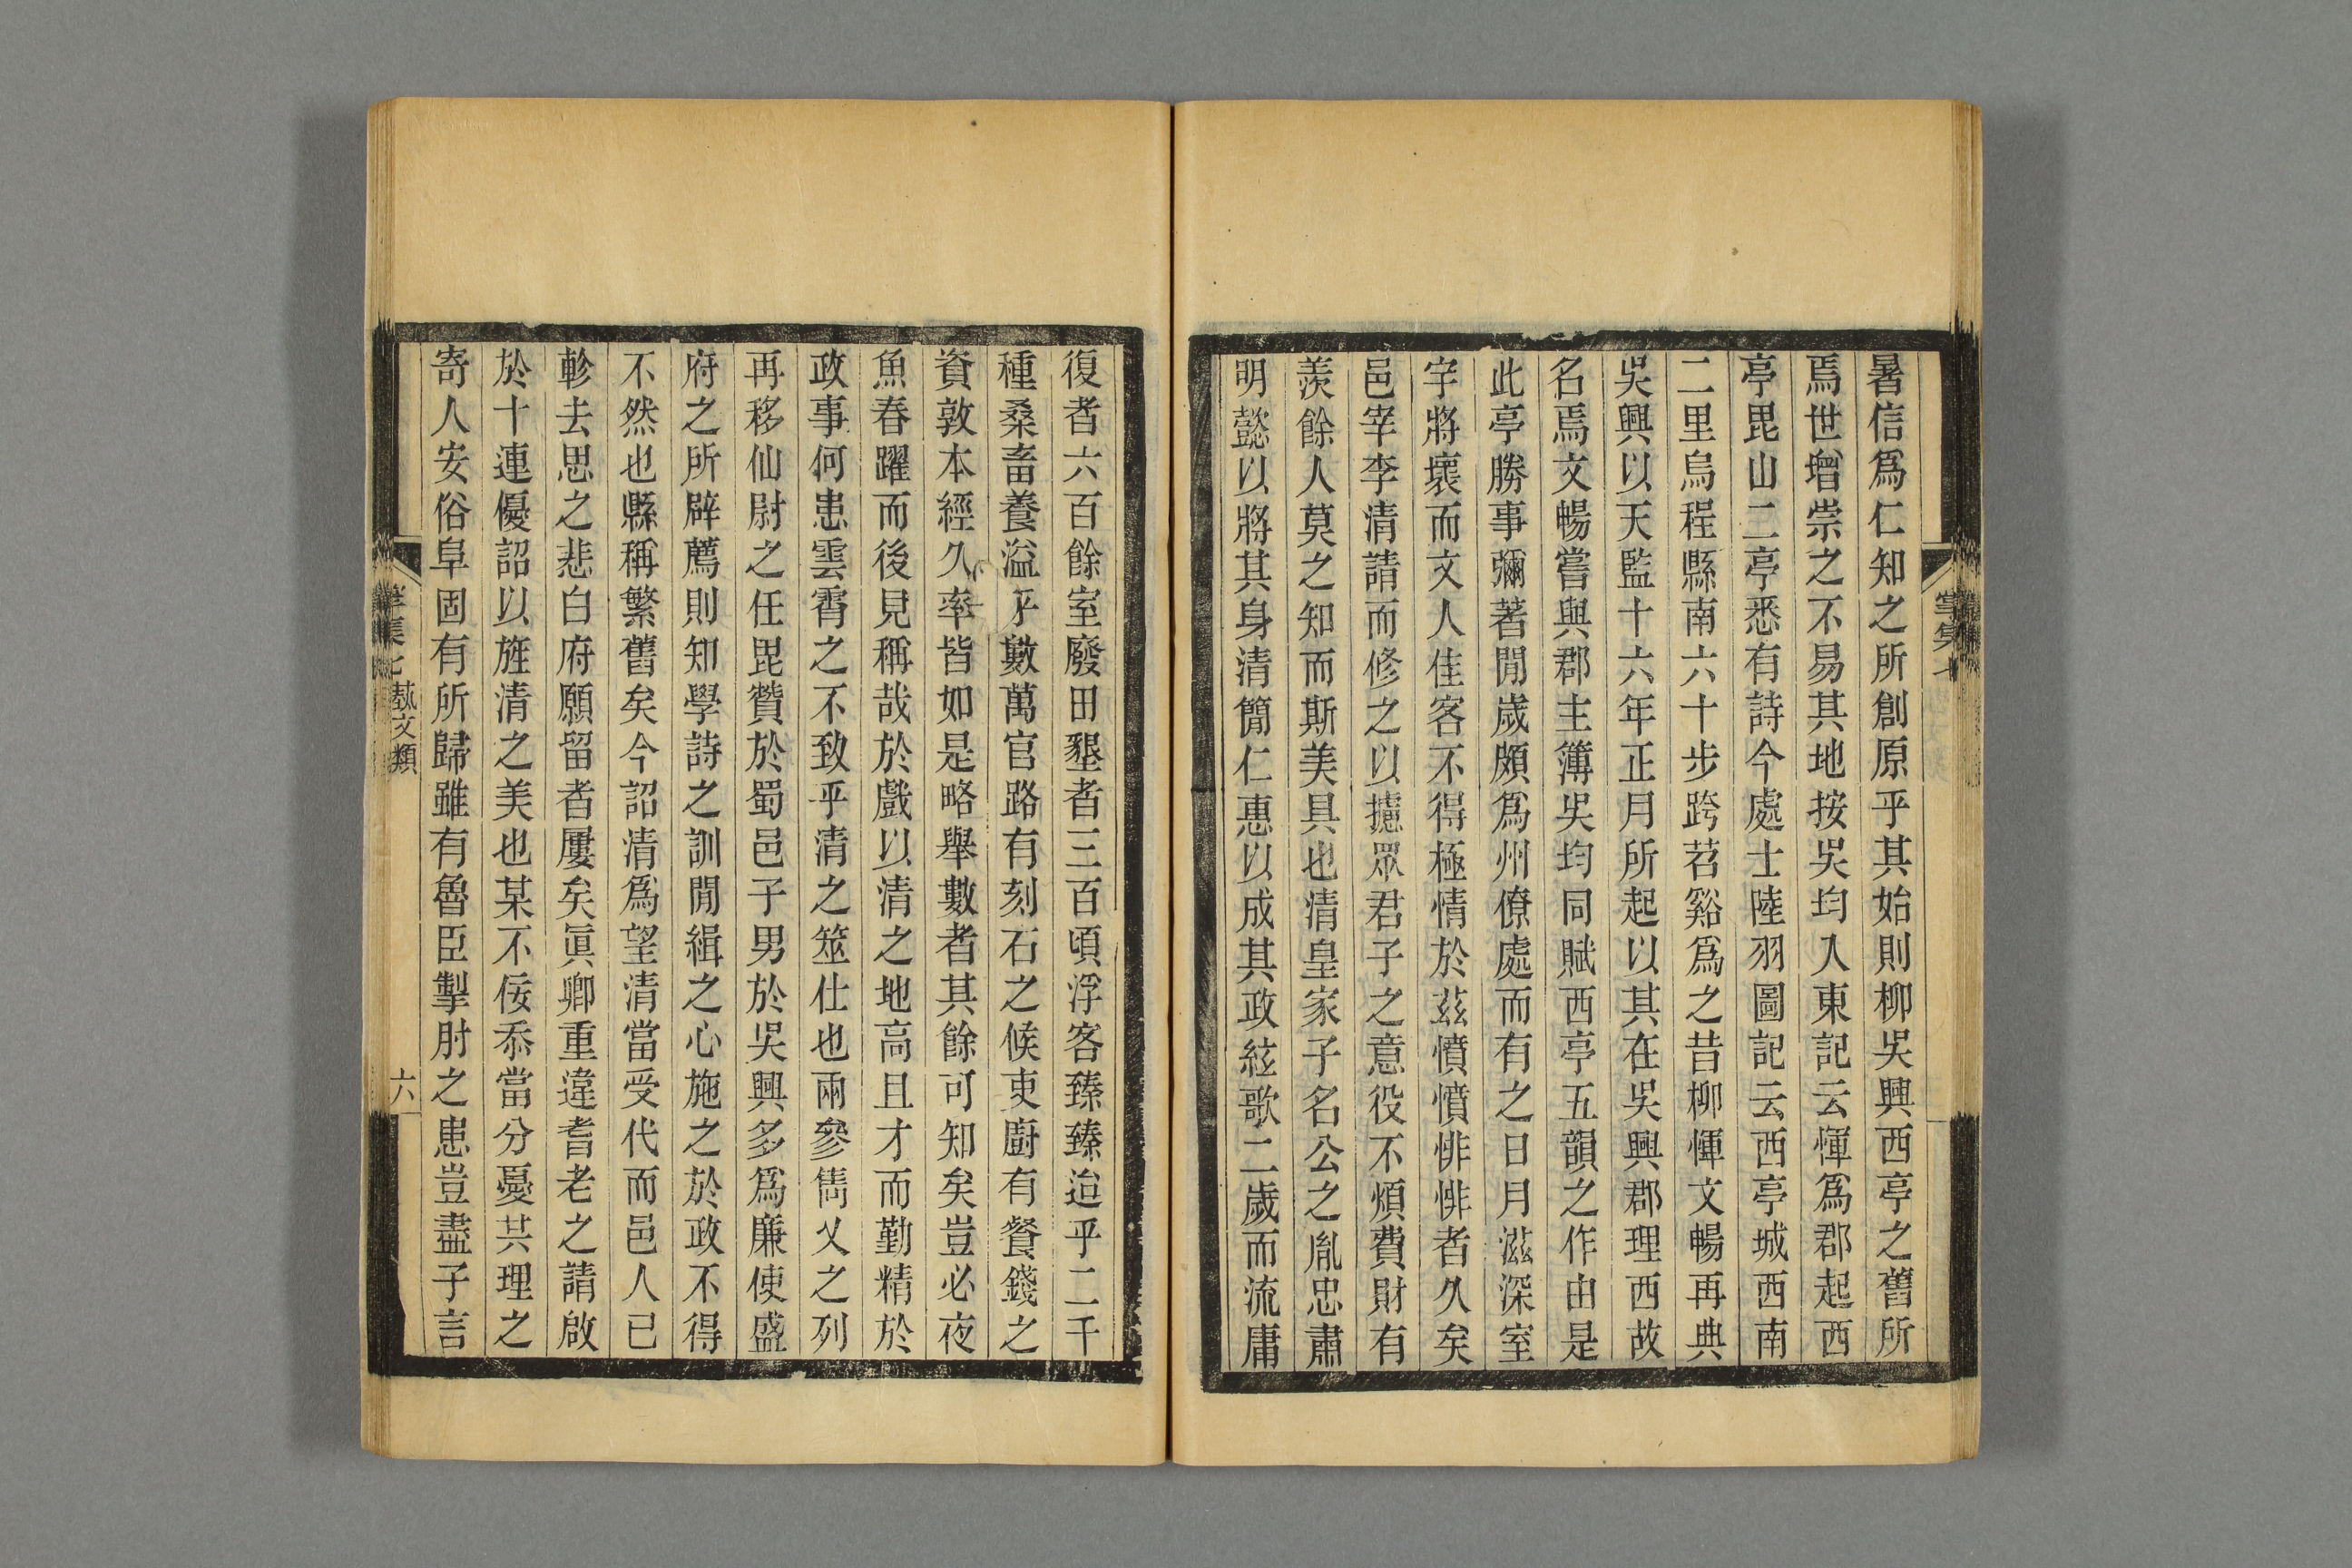 暑信爲仁知之所創原乎其始則柳吳興西亭之舊所
焉世增崇之不易其地按吳均入東記云惲爲郡起西
亭毘山二亭悉有詩今處士陸羽圖記云西亭城西南
二里烏程縣南六十步跨苕谿爲之昔柳惲文暢再典
吳興以天監十六年正月所起以其在吳興郡理西故
名焉文暢嘗與郡主簿吳均同賦西亭五韻之作由是
此亭勝事彌著閒歲頗爲州僚處而有之日月滋深室
宇將壞而文人佳客不得極情於茲憤憤悱悱者久矣
邑宰李清請而修之以攄眾君子之意役不煩費財有
羨餘人莫之知而斯美具也清皇家子名公之胤忠肅
明懿以將其身清簡仁惠以成其政絃歌二歲而流庸
復者六百餘室廢田墾者三百頃浮客臻臻迨乎二千
種桑畜養溢乎數萬官路有刻石之候吏廚有餐錢之
資敦本經久率皆如是略舉數者其餘可知矣豈必夜
魚春躍而後見稱哉於戲以清之地高且才而勤精於
政事何患雲霄之不致乎清之筮仕也兩參雋乂之列
再移仙尉之任毘贊於蜀邑子男於吳興多爲廉使盛
府之所辟薦則知學詩之訓閒緝之心施之於政不得
不然也縣稱繁舊矣今詔清爲望清當受代而邑人已
軫去思之悲白府願留者屢矣眞卿重違耆老之請啟
於十連優詔以旌清之美也某不佞忝當分憂共理之
寄人安俗阜固有所歸雖有魯臣掣肘之患豈盡子言
集七
藝文類
六